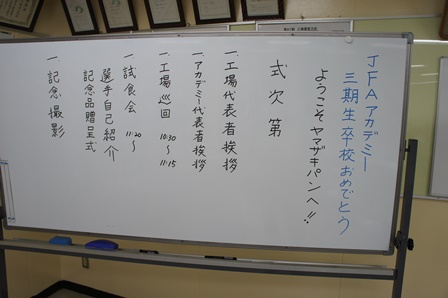 JFAアカデミー
三期生卒校おめでとう
ようこそヤマザキパンへ!!
式次第
一工場代表者挨拶
一アカデミー代表者挨拶
一工場巡回 10:30〜11:15
一試食会 11:20〜
選手自己紹介
記念品贈呈式
一記念撮影